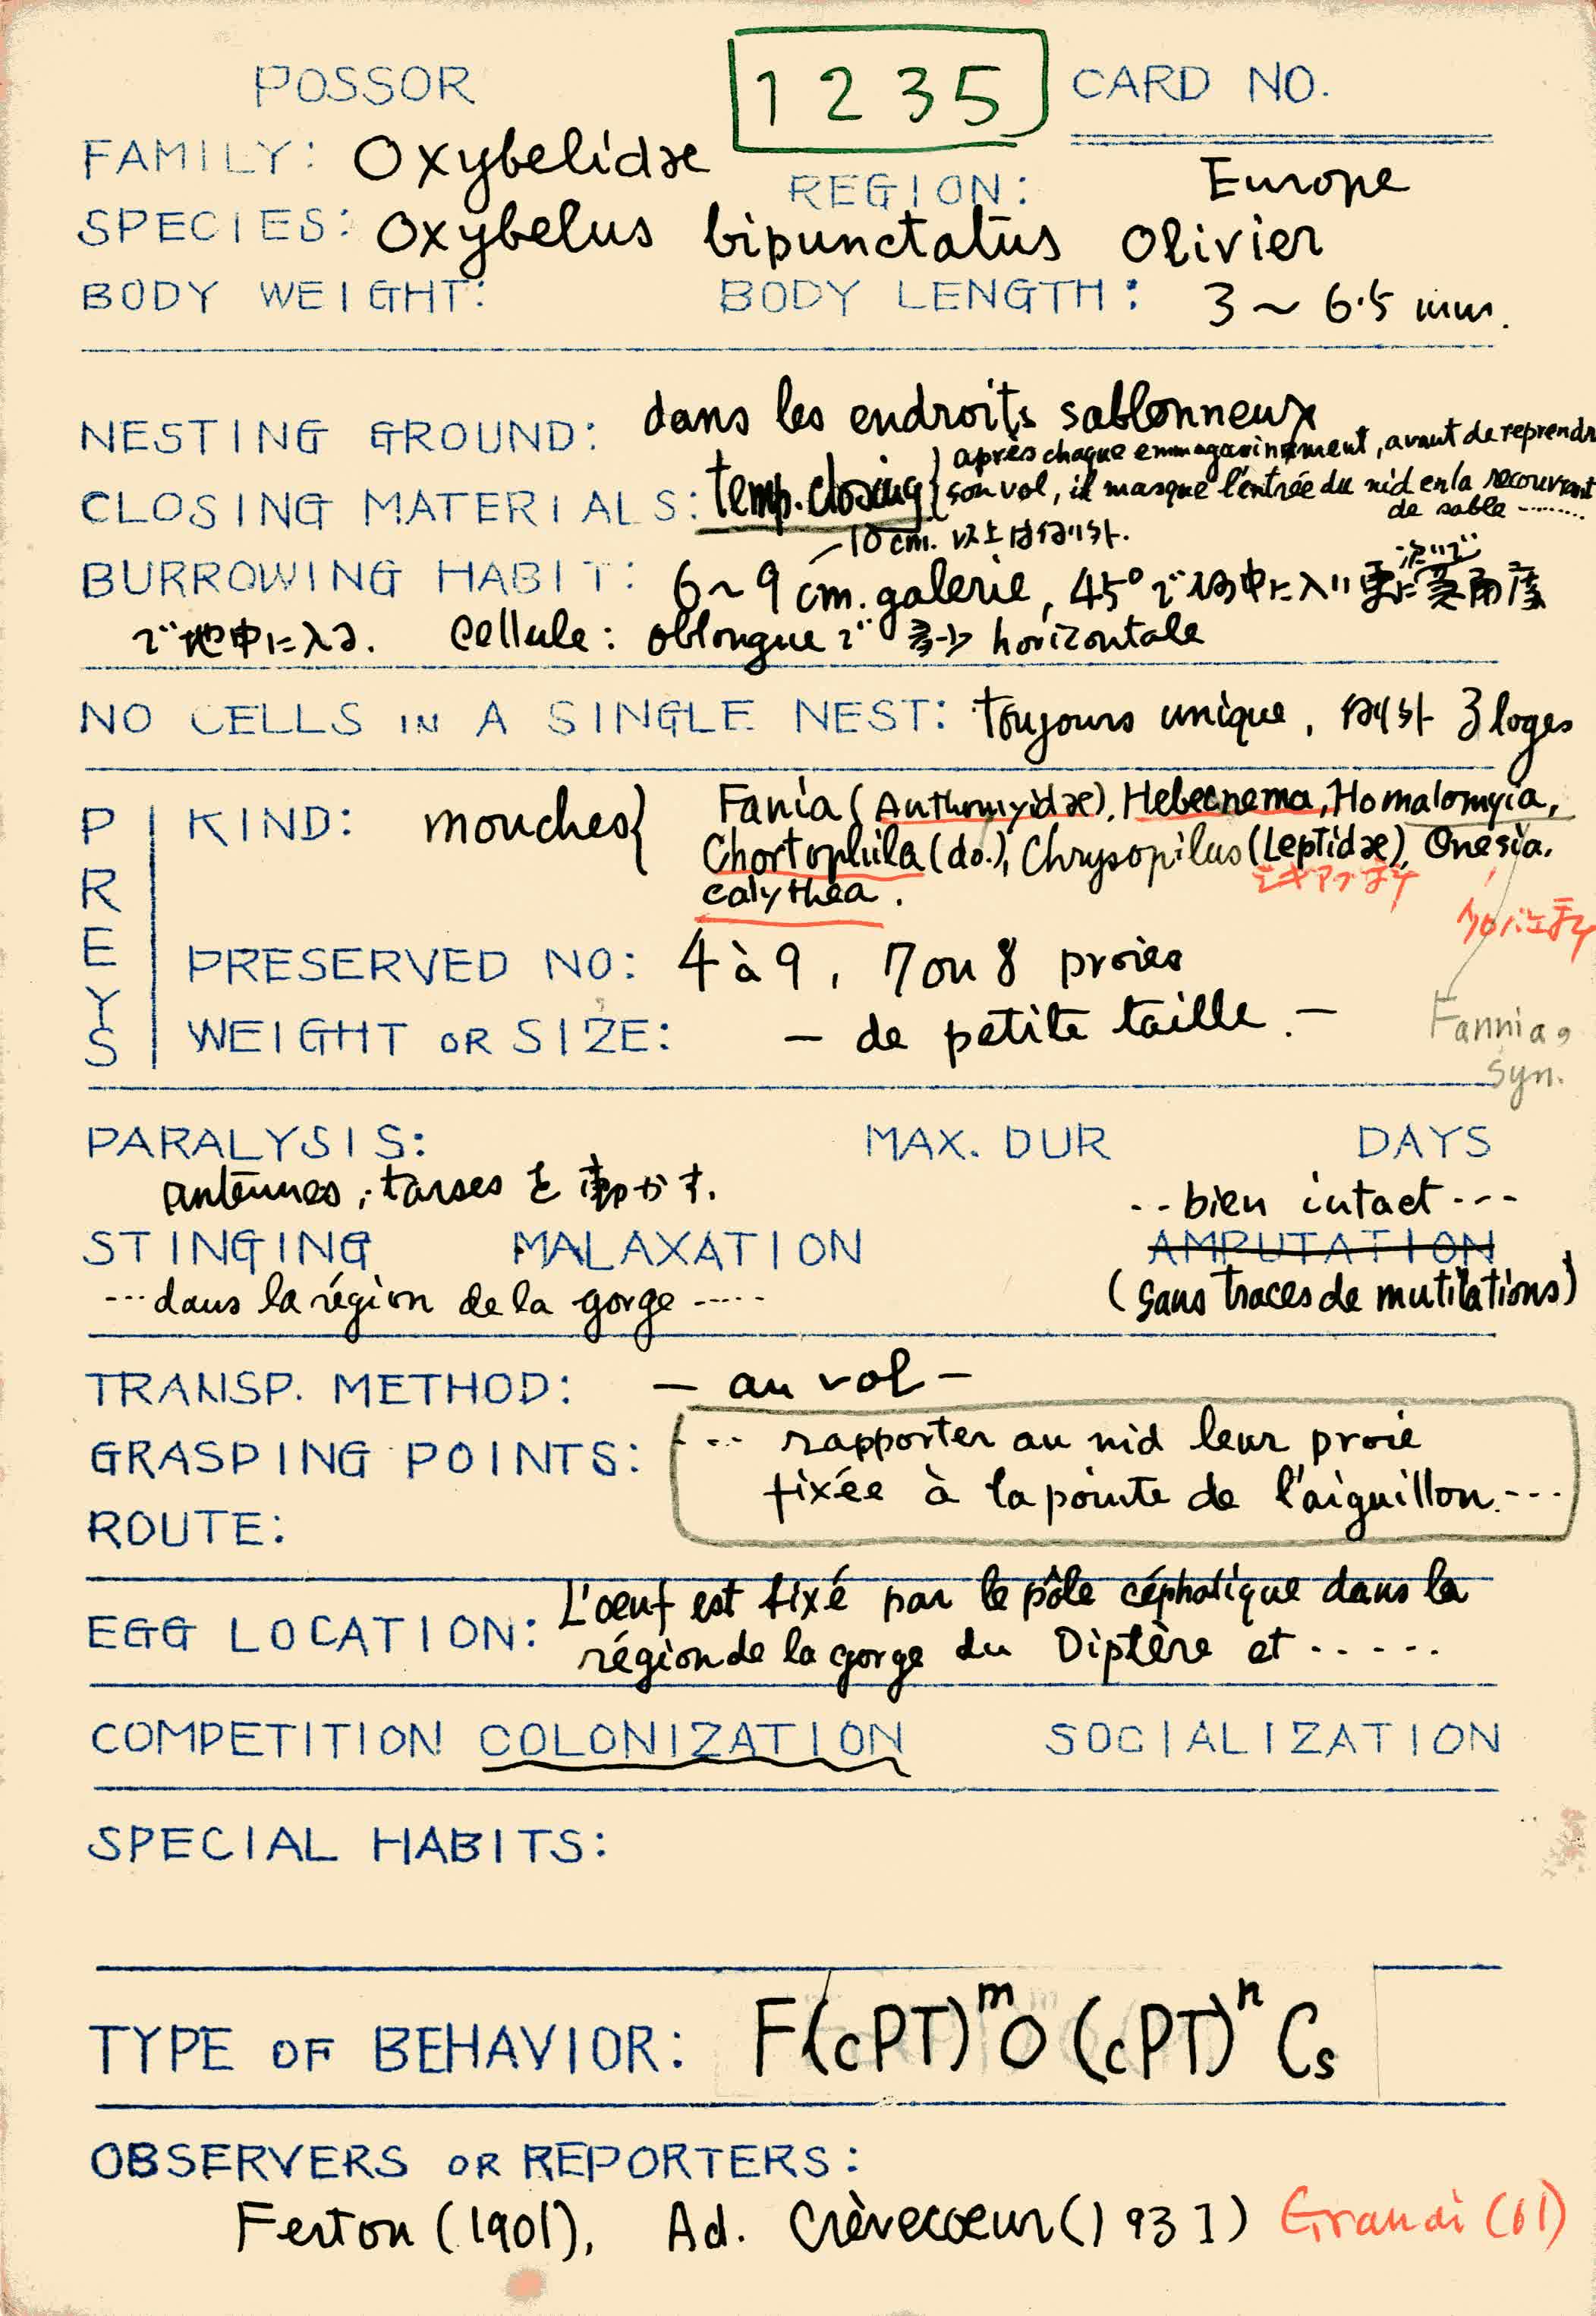 POSSOR 1235 CARD NO.
FAMILY: Oxybelidæ REGION: Europe
SPECIES: Oxybelus bipunctatus Olivier
BODY WEIGHT: BODY LENGTH: 3~6.5 mm.
NESTING GROUND: dans les endroits sablonneux
CLOSING MATERIALS: temp. closing { après chaque emmagasinement, avant de reprendre
son vol, il masque l'entrée du nid en la recouvrant
de sable ........
10 cm. 以上は例外.
BURROWING HABIT: 6~9 cm. galerie, 45°で砂中に入り更に急角度
次いで
で地中に入る. Cellule: oblongue で 多少 horizontale
NO CELLS IN A SINGLE NEST: toujours unique, 例外 3 loges
PREYS
KIND: mouches { Fania (Anthomyidæ), Hebecnema, Homalomyia,
Chortophila (do.), Chrysopilus (Leptidæ), Onesia.
calythea.
シギアブ科
クロバエ科
PRESERVED NO: 4 à 9, 7 ou 8 proies
WEIGHT OR SIZE: — de petite taille. —
Fannia,
Syn.
PARALYSIS: MAX. DUR DAYS
antennes, tarses を動かす.
--bien intact---
STINGING MALAXATION AMPUTATION
---dans la région de la gorge-----
(sans traces de mutilations)
TRANSP. METHOD: — au vol —
GRASPING POINTS: --- rapporter au nid leur proie
fixée à la pointe de l'aiguillon.---
ROUTE:
EGG LOCATION: L'oeuf est fixé par le pôle céphalique dans la
région de la gorge du Diptère et ......
COMPETITION COLONIZATION SOCIALIZATION
SPECIAL HABITS:
TYPE OF BEHAVIOR: F(cPT)ᵐO(cPT)ⁿCs
OBSERVERS OR REPORTERS:
Ferton (1901), Ad. Crèvecoeur (1931) Grandi (61)